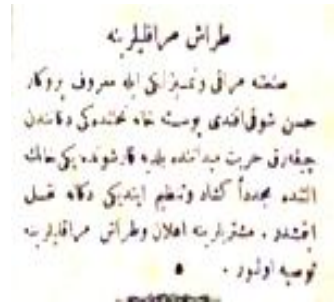 طراش مراقلیلرینه
صنعتنه مراقی و تمیزلکی ایله معروف پروکار
حسن شوقی افندی پوسته خانه تحتنده‌کی دکانندن
چیقارق حریت میداننده بلدیه قارشوسنده یکی خانك
آلتنده مجدداً کشاد و تنظیم ایتدیکی دکانه نقل
ایتمشدر . مشتریلرینه اعلان و طراش مراقلیلرینه
توصیه اولنور .